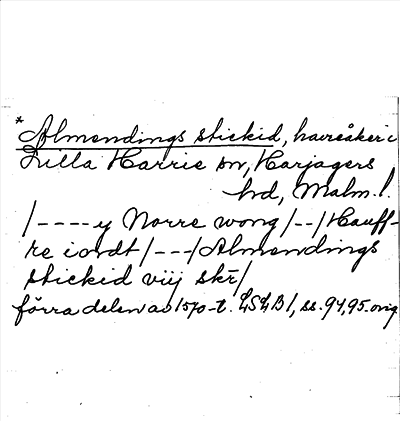 * Almendings stickid, havreåker i
Lilla Harrie sn, Harjagers
hd, Malm. l.
/----y Norre wong/--/Hauff-
re iordt/---/Almendings
stickid viij skr/
förra delen av 1570-t. LSLB1, ss. 94, 95. orig